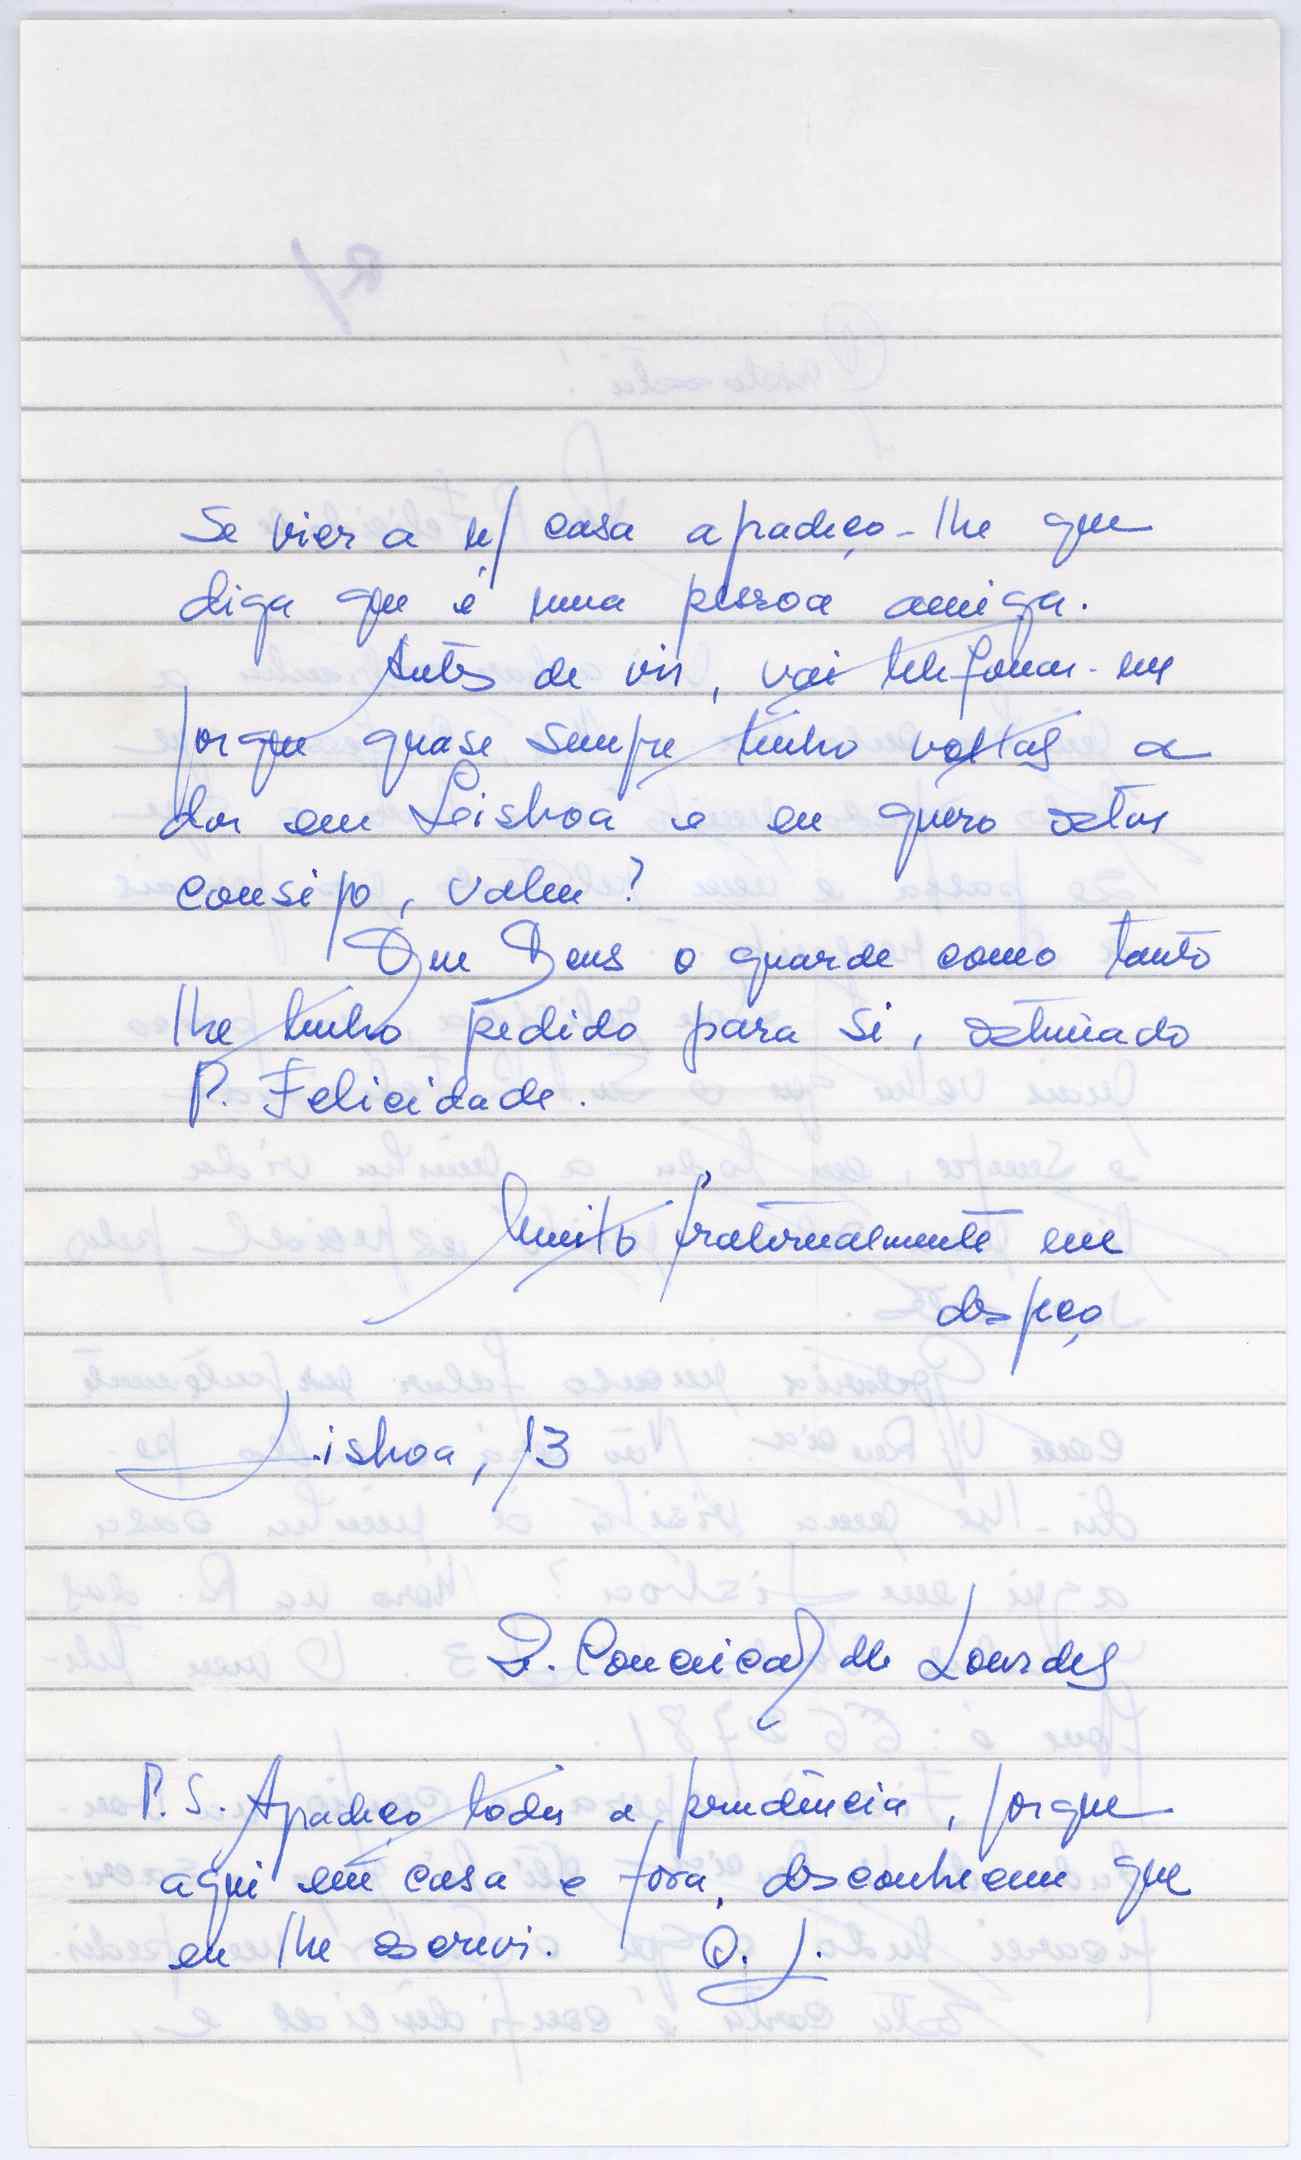 Se vier a n/ casa agradeço-lhe que
diga que é uma pessoa amiga.
Antes de vir, vai telefonar-me
porque quase sempre tenho voltas a
dar em Lisboa e eu quero estar
consigo, valeu?
Que Deus o guarde como tanto
lhe tenho pedido para si, estimado
P. Felicidade.
Muito fraternalmente me
despeço
Lisboa, 13
Conceição de Lourdes
P.S. Agradeço toda a prudência, porque
aqui em casa e fora, desconhecem que
eu lhe escrevi.